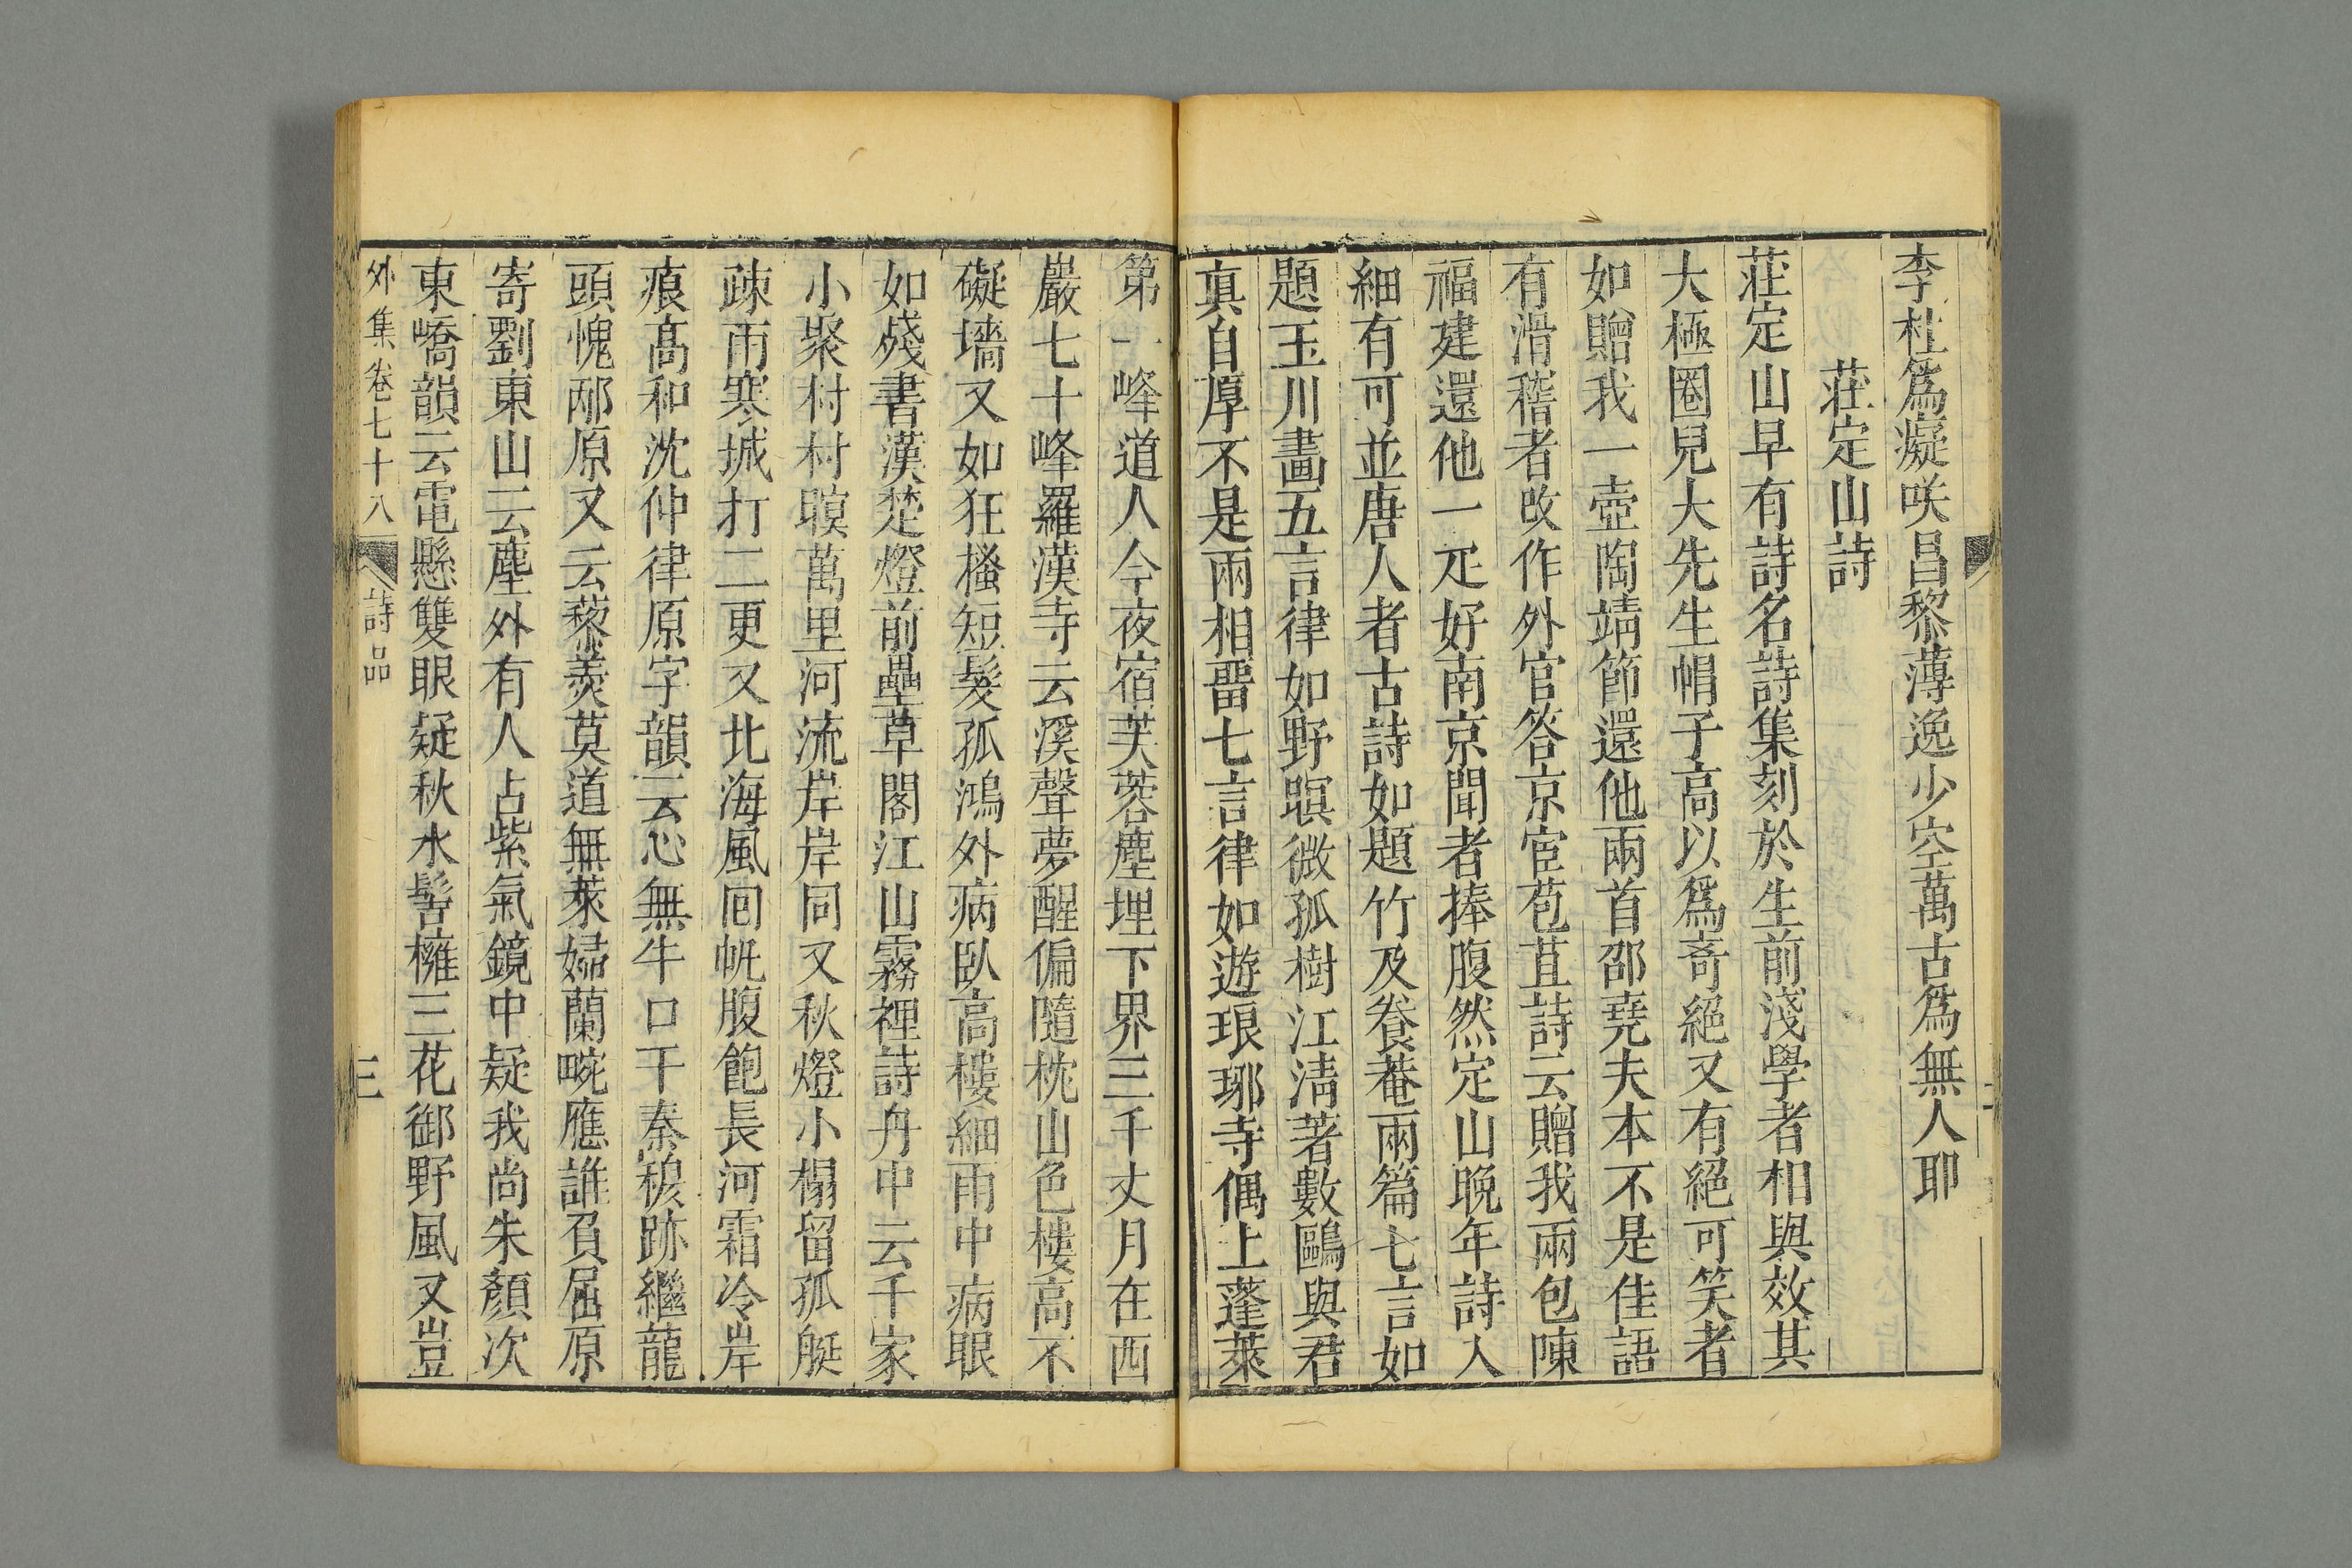 李杜爲癡咲昌黎薄逸少空萬古爲無人耶
莊定山詩
莊定山早有詩名詩集刻於生前淺學者相與效其
大極圈兒大先生帽子高以爲奇絕又有絕可笑者
如贈我一壺陶靖節還他兩首邵堯夫本不是佳語
有滑稽者改作外官答京宦苞苴詩云贈我兩包陳
福建還他一疋好南京聞者捧腹然定山晚年詩入
細有可並唐人者古詩如題竹及養菴兩篇七言如
題玉川畵五言律如野暝微孤樹江淸著數鷗與君
真自厚不是兩相畱七言律如遊琅琊寺偶上蓬萊
第一峰道人今夜宿芙蓉塵埋下界三千丈月在西
巖七十峰羅漢寺云溪聲夢醒偏隨枕山色樓高不
礙墻又如狂搔短髮孤鴻外病臥高樓細雨中病眼
如殘書漢楚燈前壘草閣江山霧裡詩舟中云千家
小聚村村暝萬里河流岸岸同又秋燈小榻留孤艇
疎雨寒城打二更又北海風囘帆腹飽長河霜冷岸
痕高和沈仲律原字韻云心無牛口干秦穆跡繼龍
頭愧邴原又云藜羮莫道無萊婦蘭畹應誰負屈原
寄劉東山云塵外有人占紫氣鏡中疑我尚朱顏次
東嶠韻云電懸雙眼疑秋水髻擁三花御野風又豈
外集卷七十八 詩品 三